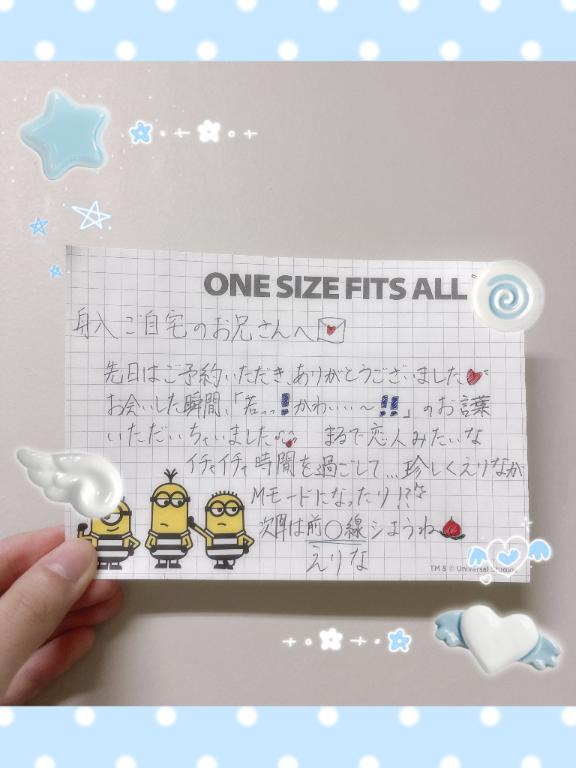 ONE SIZE FITS ALL
身入ご自宅のお兄さんへ
先日はご予約いただき、ありがとうございました
お会いした瞬間、「若...!かわいい〜!!」のお言葉
いただいちゃいました まるで恋人みたいな
イチャイチャ時間を過ごして...珍しくえりなが
Mモードになったり!?
次回は前〇線シようね
えりな
TM & © Universal Studio